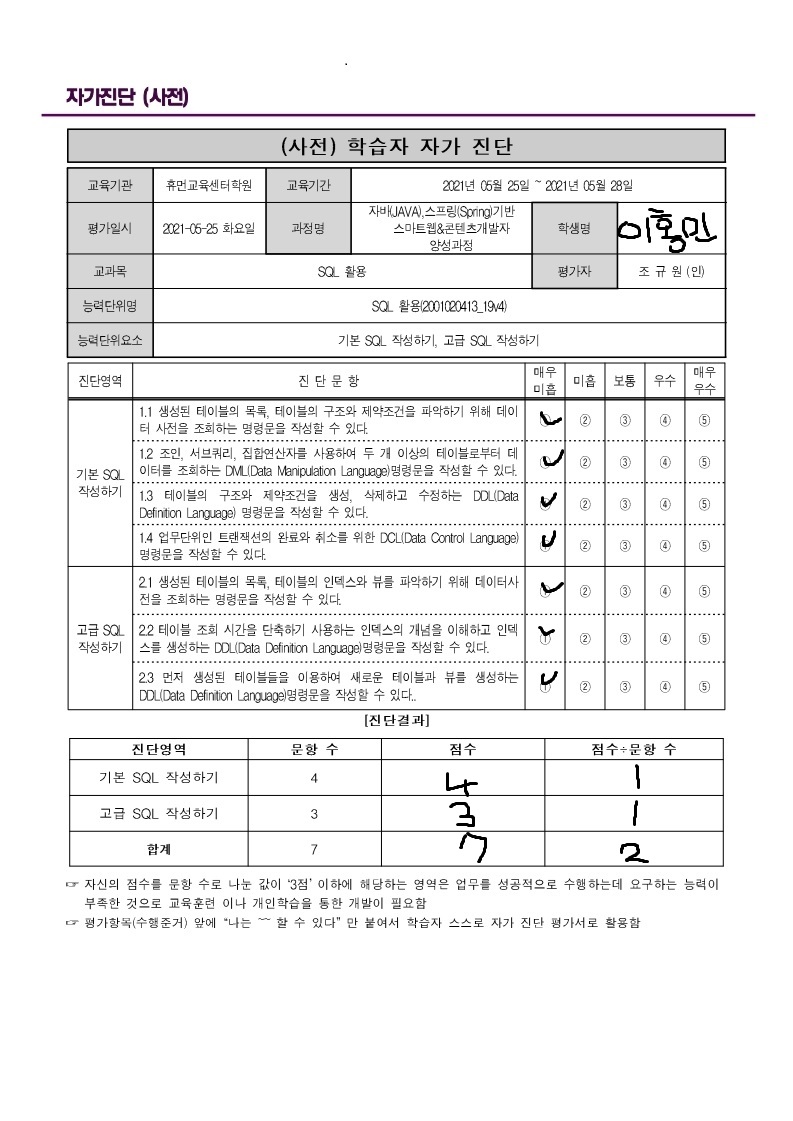 자가진단 (사전)
(사전) 학습자 자가 진단
교육기관 휴먼교육센터학원 교육기간 2021년 05월 25일 ~ 2021년 05월 28일
평가일시 2021-05-25 화요일 과정명 자바(JAVA),스프링(Spring)기반
스마트웹&콘텐츠개발자
양성과정
학생명 이홍민
교과목 SQL 활용 평가자 조 규 원 (인)
능력단위명 SQL 활용(2001020413_19v4)
능력단위요소 기본 SQL 작성하기, 고급 SQL 작성하기
진단영역 진 단 문 항 매우 미흡 미흡 보통 우수 매우 우수
기본 SQL
작성하기
1.1 생성된 테이블의 목록, 테이블의 구조와 제약조건을 파악하기 위해 데이
터 사전을 조회하는 명령문을 작성할 수 있다.
② ③ ④ ⑤
1.2 조인, 서브쿼리, 집합연산자를 사용하여 두 개 이상의 테이블로부터 데
이터를 조회하는 DML(Data Manipulation Language)명령문을 작성할 수 있다.
② ③ ④ ⑤
1.3 테이블의 구조와 제약조건을 생성, 삭제하고 수정하는 DDL(Data
Definition Language) 명령문을 작성할 수 있다.
② ③ ④ ⑤
1.4 업무단위인 트랜잭션의 완료와 취소를 위한 DCL(Data Control Language)
명령문을 작성할 수 있다.
② ③ ④ ⑤
고급 SQL
작성하기
2.1 생성된 테이블의 목록, 테이블의 인덱스와 뷰를 파악하기 위해 데이터사
전을 조회하는 명령문을 작성할 수 있다.
② ③ ④ ⑤
2.2 테이블 조회 시간을 단축하기 사용하는 인덱스의 개념을 이해하고 인덱
스를 생성하는 DDL(Data Definition Language)명령문을 작성할 수 있다.
① ② ③ ④ ⑤
2.3 먼저 생성된 테이블들을 이용하여 새로운 테이블과 뷰를 생성하는
DDL(Data Definition Language)명령문을 작성할 수 있다..
① ② ③ ④ ⑤
[진단결과]
진단영역 문항 수 점수 점수÷문항 수
기본 SQL 작성하기 4 4 1
고급 SQL 작성하기 3 3 1
합계 7 7 2
☞ 자신의 점수를 문항 수로 나눈 값이 '3점' 이하에 해당하는 영역은 업무를 성공적으로 수행하는데 요구하는 능력이
부족한 것으로 교육훈련 이나 개인학습을 통한 개발이 필요함
☞ 평가항목(수행준거) 앞에 "나는 ~~ 할 수 있다" 만 붙여서 학습자 스스로 자가 진단 평가서로 활용함